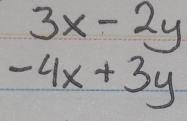 3x - 2y
-4x + 3y